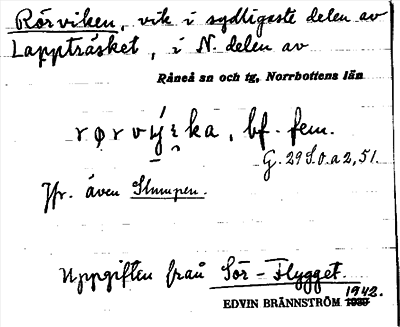 Rörviken, vik i sydligaste delen av
Lappträsket, i N. delen av
Råneå sn och tg, Norrbottens län
bf. fem.
G. 29 S.O. a 2, 51.
Jfr. även Stumpen.
Uppgiften från Sör-Flygget.
1942.
EDVIN BRÄNNSTRÖM 1939